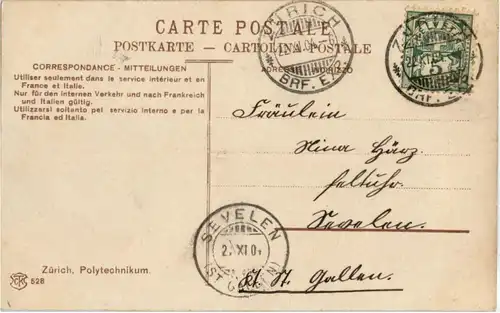 CARTE POSTALE
POSTKARTE - CARTOLINA POSTALE
CORRESPONDANCE - MITTEILUNGEN
Utiliser seulement dans le service intérieur et en
France et Italie.
Nur für den internen Verkehr und nach Frankreich
und Italien gültig.
Utilizzarsi soltanto pel servizio interno e per la
Francia ed Italia.
ZÜRICH
BRF. E.
Fräulein
Nina Härz
Sevelen.
Kt. St. Gallen.
SEVELEN
XI 0
(ST. GALLEN)
Zürich, Polytechnikum.
528